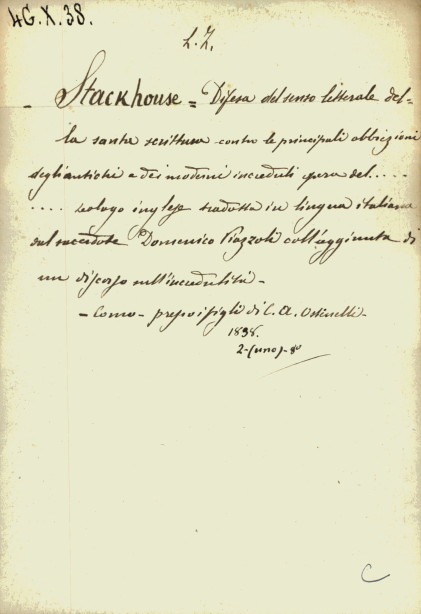 4G.X.38.
L.Z.
- Stackhouse = Difesa del senso letterale del=
la santa scrittura contro le principali obbiezioni
degli antichi e dei moderni increduli opera del....
.... teologo inglese tradotta in lingua italiana
dal sacerdote Domenico Piazzoli coll'aggiunta di
un discorso sull'incredulità -
- Como - presso i figli di C. A. Ostinelli -
1838.
2-(uno)-8º
C